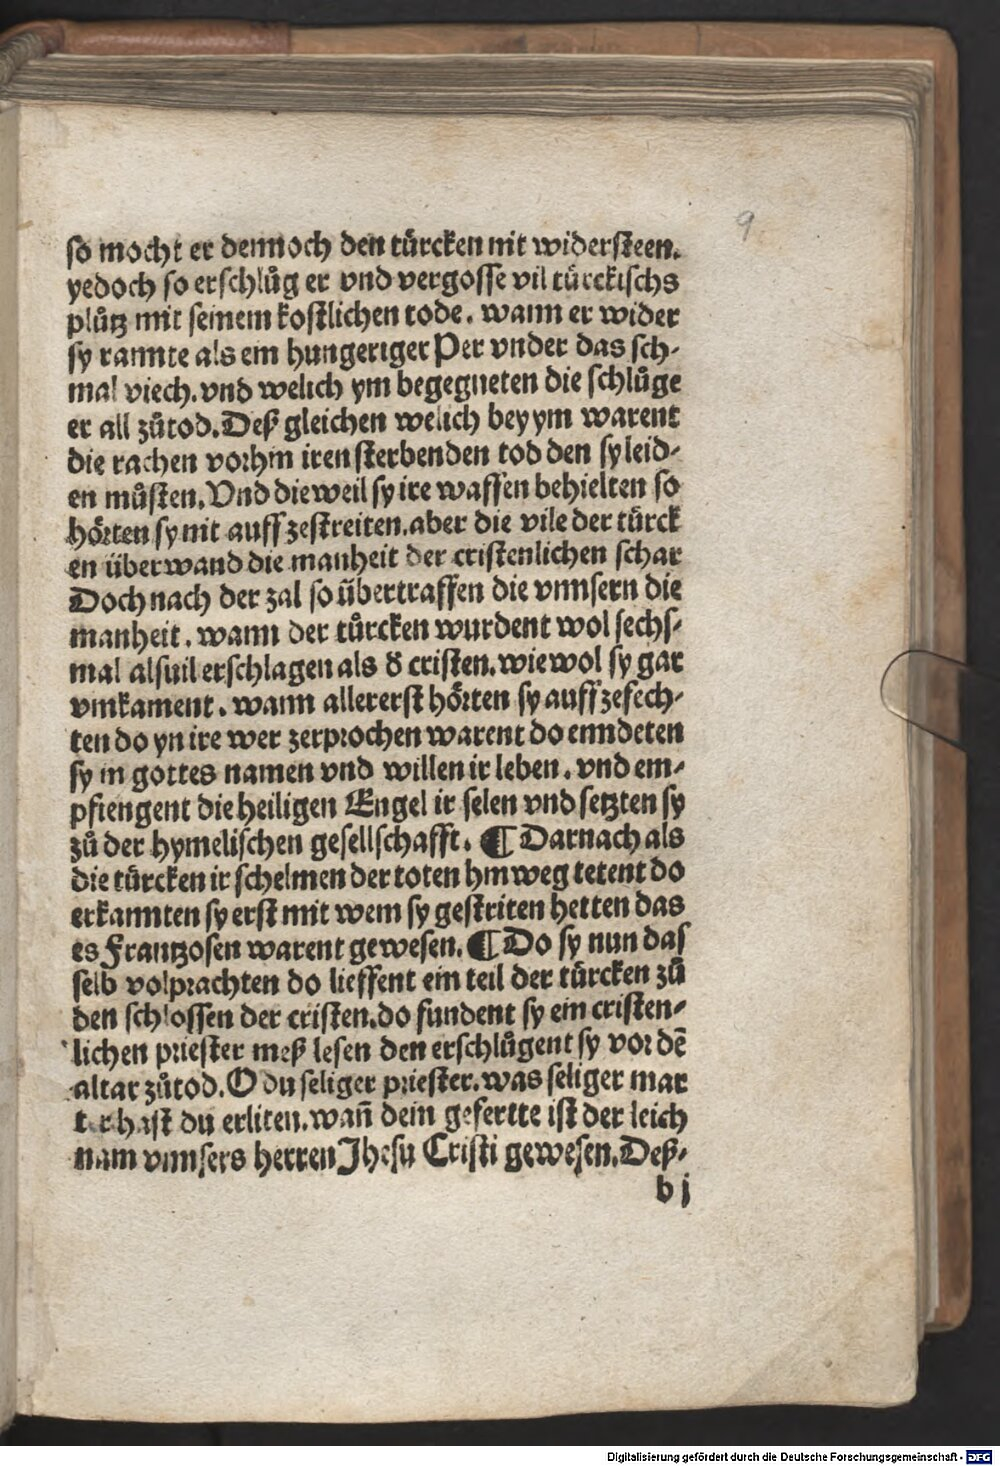 9
so mocht er dennoch den türcken nit widersteen.
yedoch so erschlůg er vnd vergosse vil türckischs
plůtz mit seinem kostlichen tode. wann er wider
sy rannte als ein hungeriger Per vnder das sch-
mal viech. vnd welich ym begegneten die schlůge
er all zůtod. Deß gleichen welich bey ym warent
die rachen vorhin iren sterbenden tod den sy leid-
en můsten. Vnd die weil sy ire waffen behielten so
hörten sy nit auff zestreiten. aber die vile der türck
en überwand die manheit der cristenlichen schar
Doch nach der zal so übertraffen die vnnsern die
manheit. wann der türcken wurdent wol sechs-
mal alsuil erschlagen als ð cristen. wie wol sy gar
vmkament. wann allererst hörten sy auff zefech-
ten do yn ire wer zerprochen warent do enndeten
sy in gottes namen vnd willen ir leben. vnd em-
pfiengent die heiligen Engel ir selen vnd setzten sy
zů der hymelischen gesellschafft. ¶ Darnach als
die türcken ir schelmen der toten hinweg tetent do
erkannten sy erst mit wem sy gestriten hetten das
es Frantzosen warent gewesen. ¶ Do sy nun das
selb volprachten do lieffent ein teil der türcken zů
den schlossen der cristen. do fundent sy ein cristen-
lichen priester meß lesen den erschlůgent sy vor dē
altar zůtod. O du seliger priester. was seliger mar
ter hast du erliten. wañ dein gefertte ist der leich
nam vnnsers herren Jhesu Cristi gewesen. Deß-
b j
Digitalisierung gefördert durch die Deutsche Forschungsgemeinschaft - DFG